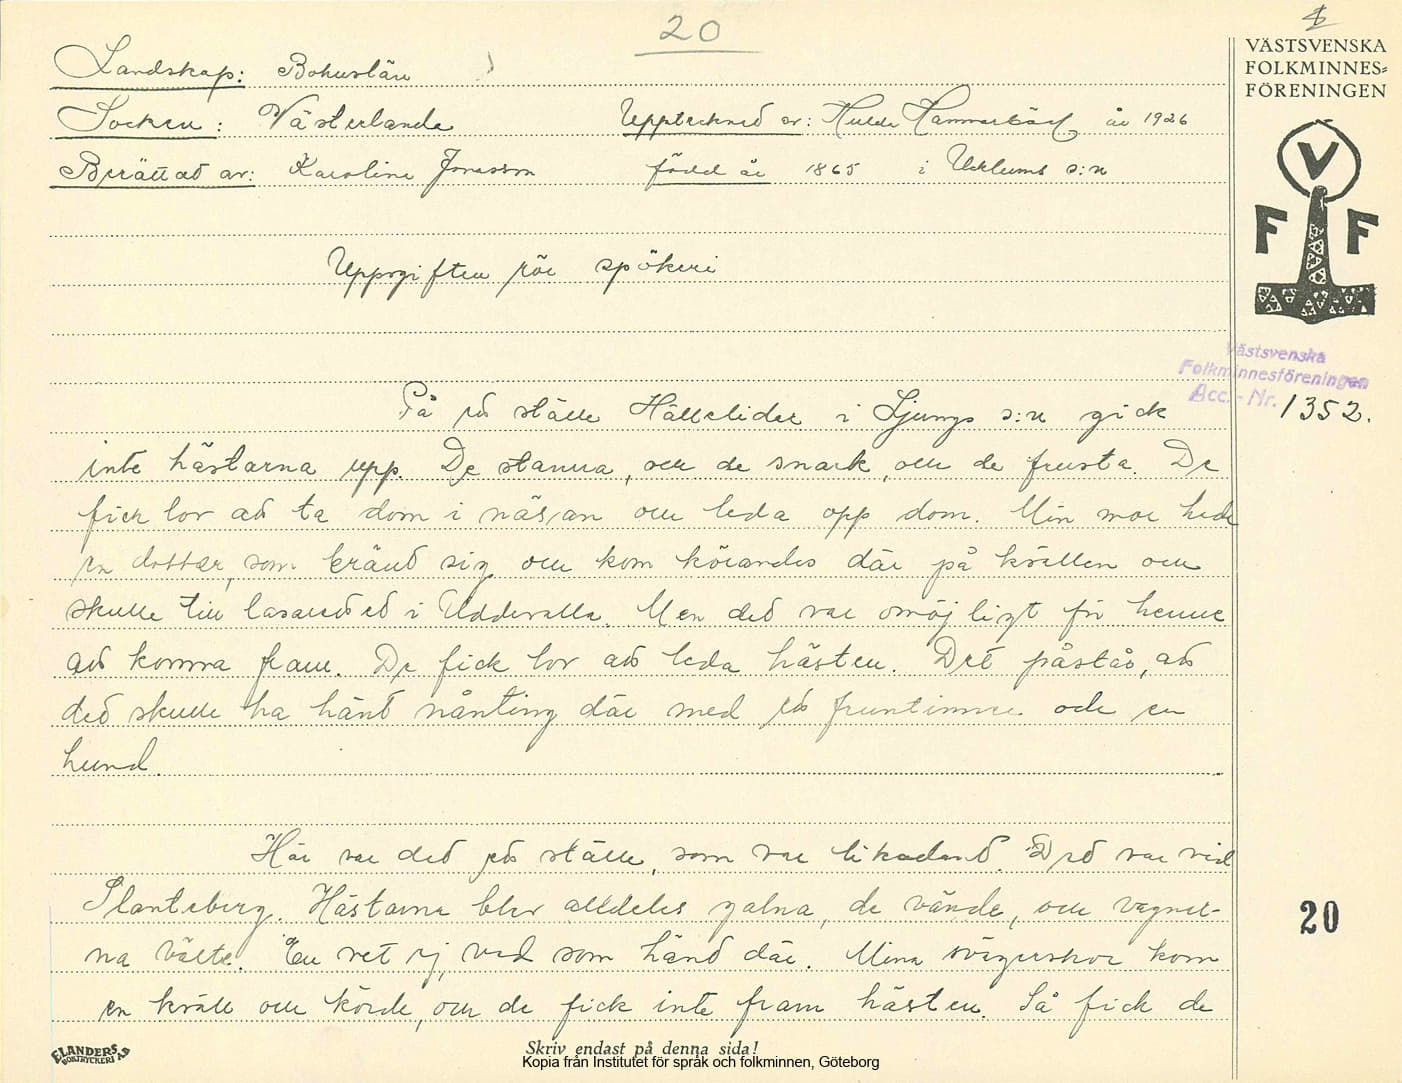 20
VÄSTSVENSKA
FOLKMINNES=
FÖRENINGEN
V
F F
Landskap: Bohuslän
Socken: Västerlanda Upptecknad av: Hulda Hammarbäck år 1926
Berättad av: Karolina Jonasson född år 1865 i Ucklums s:n
Uppgiften rör spökeri
Västsvenska
Folkminnesföreningen
Acc.-Nr. 1352.
På ed ställe Hällelider i Ljungs s:n gick
inte hästarna upp. De stanna, ou de snark, ou de frusta. De
fick lov ad ta dom i näsan ou leda opp dom. Min mor hade
en dotter, som bränd sig ou kom körandes där på kvällen ou
skulle till lasareded i Uddevalla. Men ded var omöjligt för henne
ad komma fram. De fick lov ad leda hästen. Det påstås, ad
ded skulle ha händ nånting där med ed fruntimmer och en
hund.
Här var ded ed ställe, som var likadand. Ded var vid
Slanteberg. Hästarna blev alldeles galna, de vände, ou vagnar-
na välte. En vet ej, vad som händ där. Mina svägerskor kom
en kväll ou körde, ou de fick inte fram hästen. Så fick de
20
ELANDERS
BOKTRYCKERI AB
Skriv endast på denna sida!
Kopia från Institutet för språk och folkminnen, Göteborg